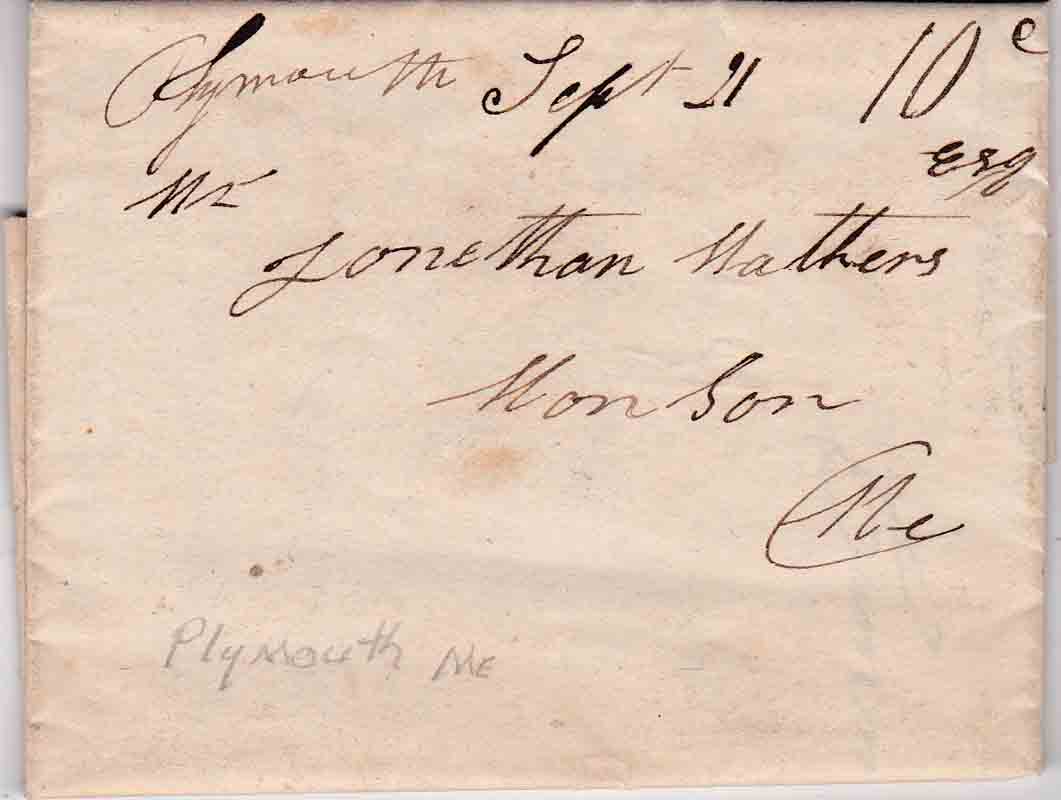 Plymouth Sept 21 10 c
Esq
Mr
Jonethan Mathers
Monson
Me
Plymouth Me